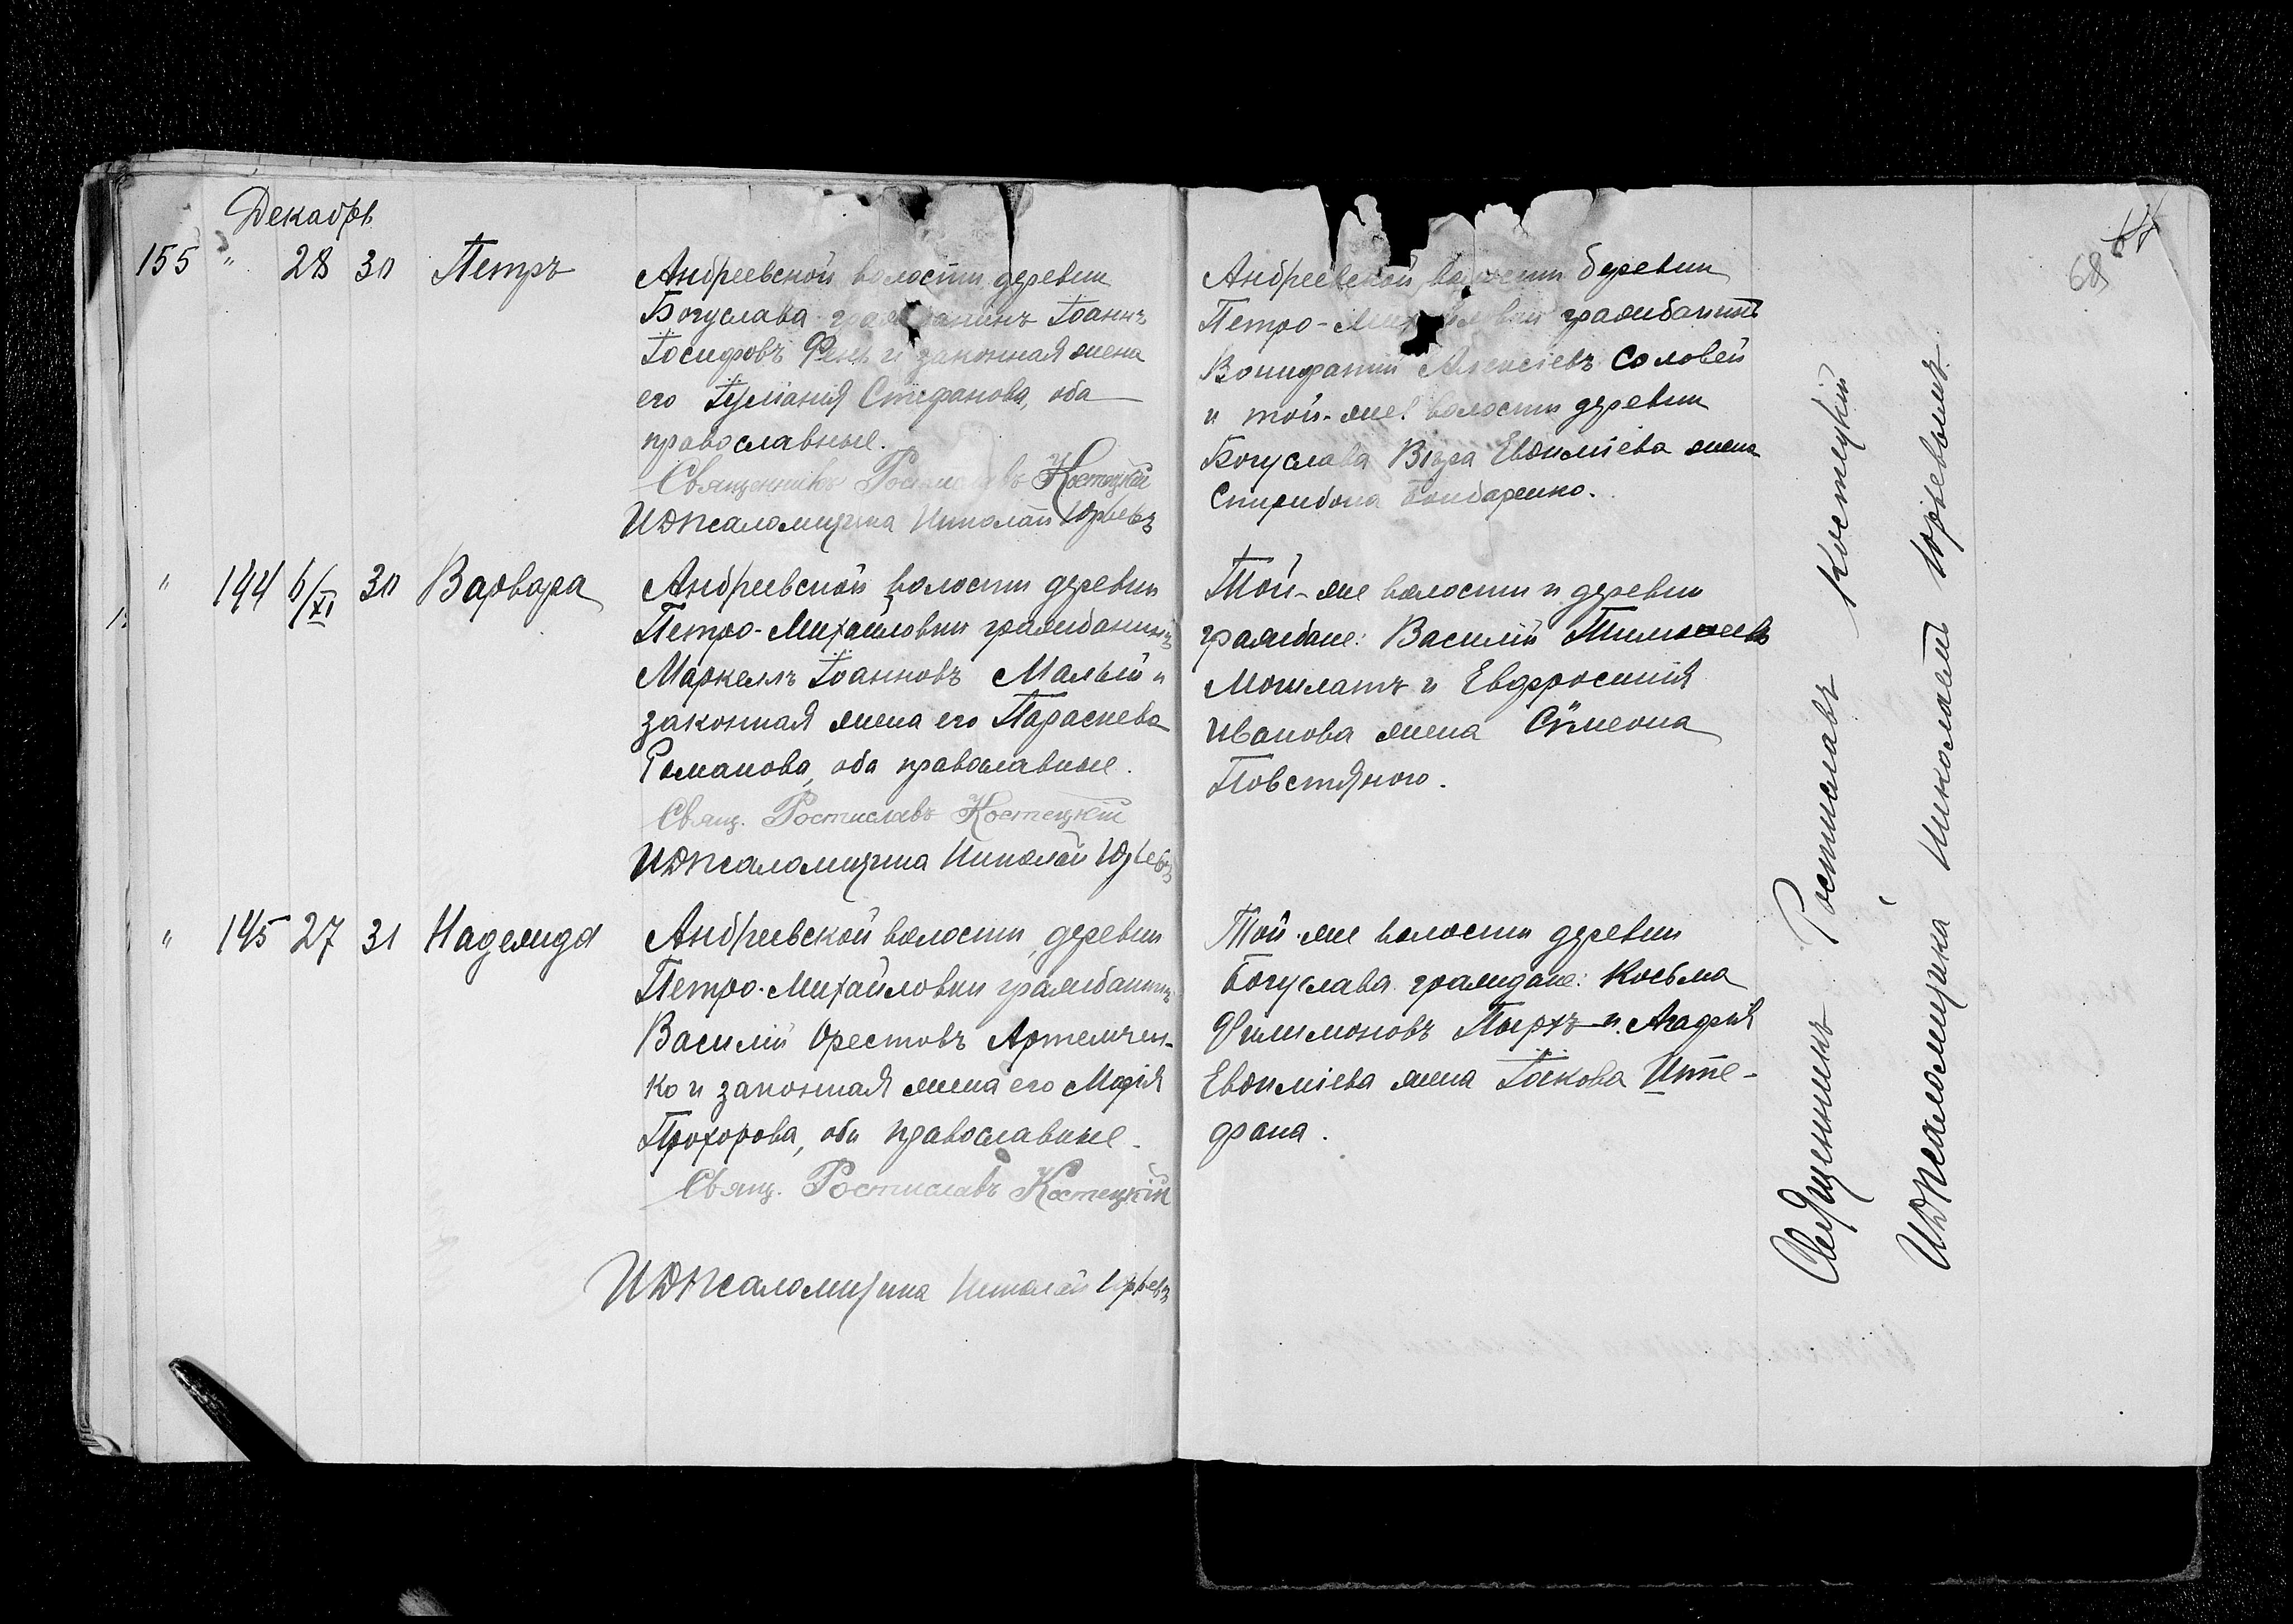 Декабрь
155 " 28 30 Петръ
Андреевской волости деревни
Богуслава гражданинъ Іоаннъ
Іосифовъ и законная жена
его Іуліанія Стефанова, оба
православные.
Священникъ Ростиславъ Костецкій
ИДПсаломщика Николай Юрьевъ
Андреевской волости деревни
Петро-Михайловки гражданинъ
Вонифатій Алексіевъ Соловей
и той-же волости деревни
Богуслава Вѣра Евѳиміева жена
Спиридона Бондаренко.
" 144 6/XI 30 Варвара
Андреевской волости деревни
Петро-Михайловки гражданинъ
Маркеллъ Іоанновъ Малый и
законная жена его Параскева
Романова, оба православные.
Свящ. Ростиславъ Костецкій
ИДПсаломщика Николай Юрьевъ
Той-же волости и деревни
граждане: Василій Тимоѳеевъ
и Евфросинія
Иванова жена Сѵмеона
Повстяного.
" 145 27 31 Надежда
Андреевской волости деревни
Петро-Михайловки гражданинъ
Василій Орестовъ Артемчен-
ко и законная жена его Марія
Прохорова, оба православные.
Свящ. Ростиславъ Костецкій
ИДПсаломщика Николай Юрьевъ
Той-же волости деревни
Богуслава граждане: Косьма
Филимоновъ Пырхъ и Агафія
Евѳиміева жена Іакова Ште-
фана.
Священникъ Ростиславъ Костецкій
ИДПсаломщика Николай Юрьевъ
68